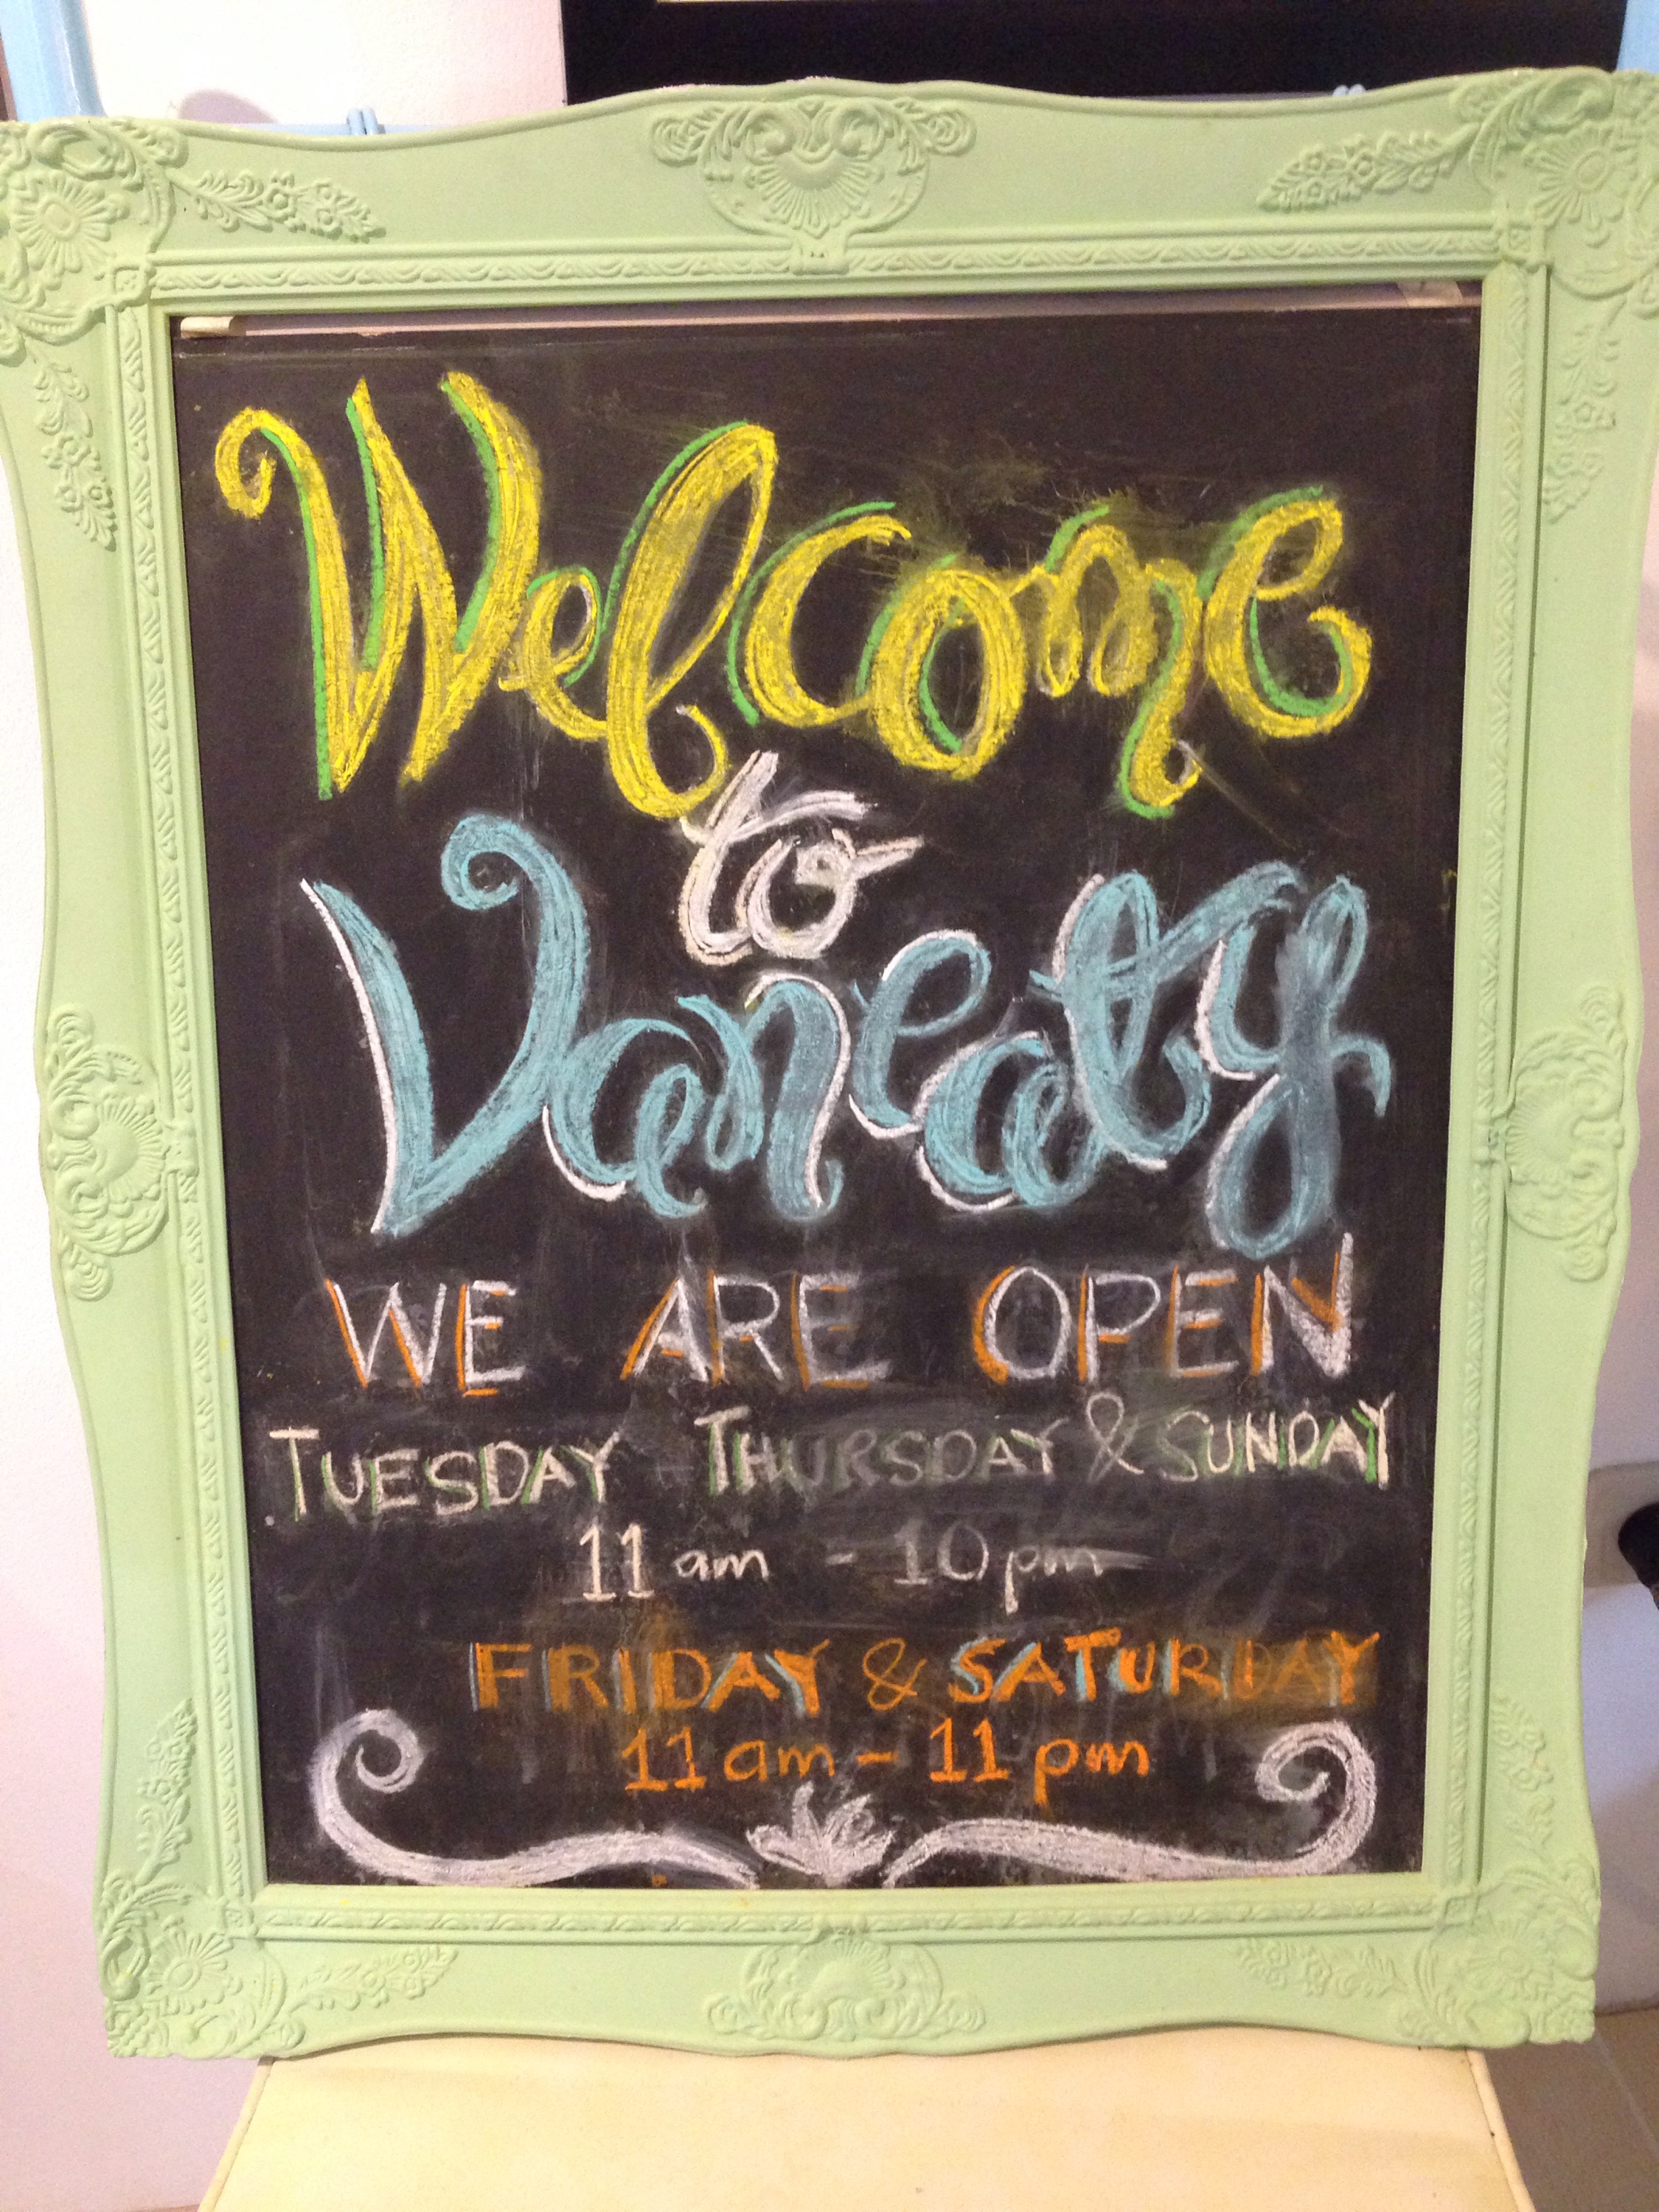 Welcome
to
Vaneaty
WE ARE OPEN
TUESDAY - THURSDAY & SUNDAY
11 am - 10 pm
FRIDAY & SATURDAY
11 am - 11 pm